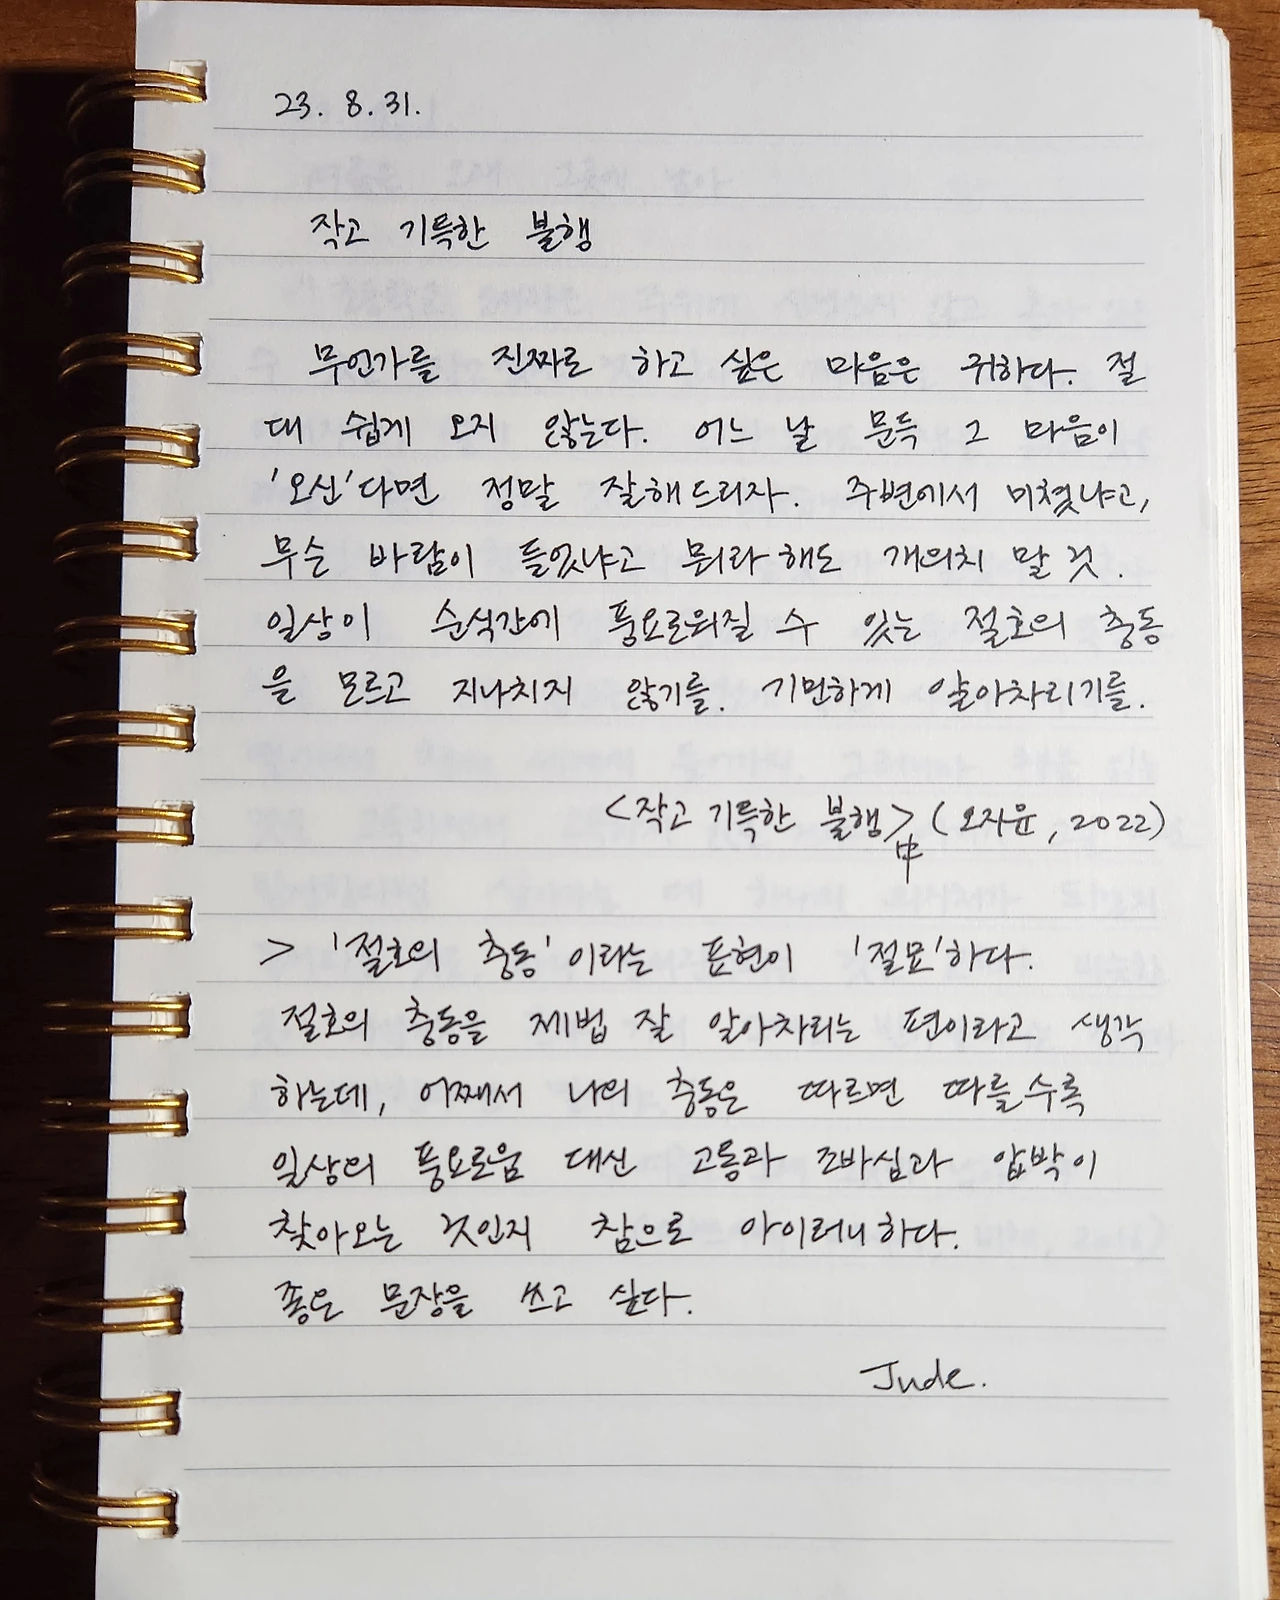 23. 8. 31.
작고 기특한 불행
무언가를 진짜로 하고 싶은 마음은 귀하다. 절
대 쉽게 오지 않는다. 어느 날 문득 그 마음이
'오신'다면 정말 잘해드리자. 주변에서 미쳤냐고,
무슨 바람이 들었냐고 뭐라 해도 개의치 말 것.
일상이 순식간에 풍요로워질 수 있는 절호의 충동
을 모르고 지나치지 않기를. 기민하게 알아차리기를.
<작고 기특한 불행> 中 (오지윤, 2022)
> '절호의 충동'이라는 표현이 '절묘'하다.
절호의 충동을 제법 잘 알아차리는 편이라고 생각
하는데, 어째서 나의 충동은 따르면 따를수록
일상의 풍요로움 대신 고통과 조바심과 압박이
찾아오는 것인지 참으로 아이러니하다.
좋은 문장을 쓰고 싶다.
Jude.